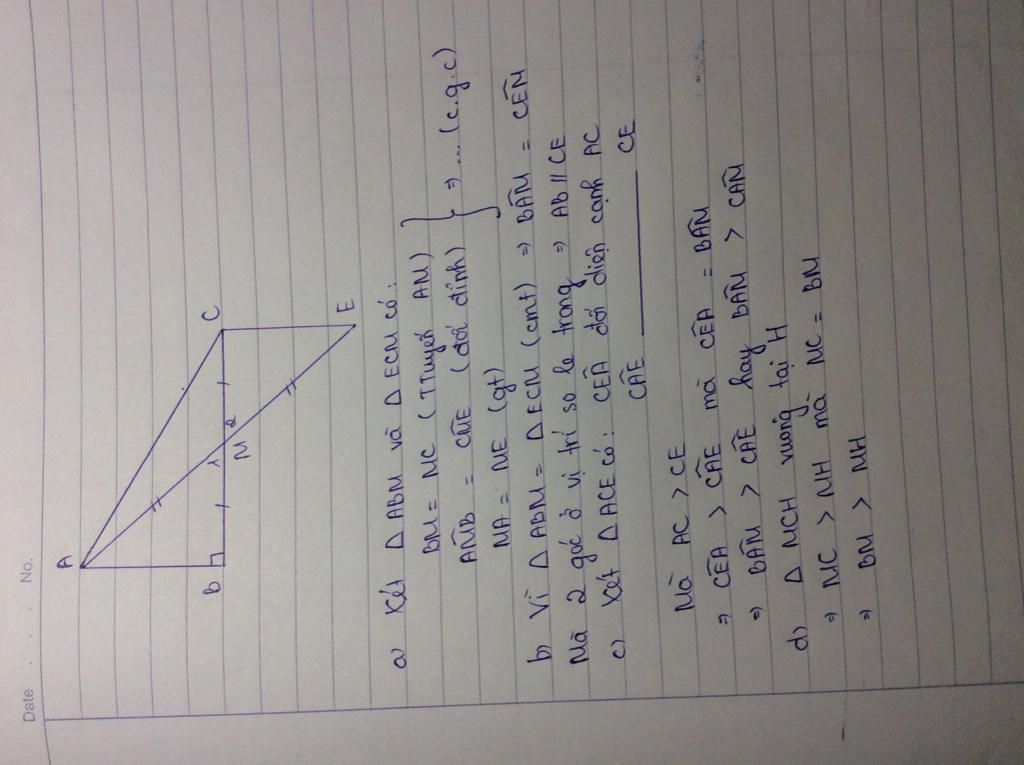 Date . . . No.
A
B
C
M
1
2
E
a) Xét Δ ABM và Δ ECM có:
BM = MC (TTuyến AM)
AM̂B = CM̂E (đối đỉnh)
MA = ME (gt)
} => ... (c.g.c)
b) Vì Δ ABM = Δ ECM (cmt) => BÂM = CÊM
Mà 2 góc ở vị trí so le trong => AB // CE
c) Xét Δ ACE có: CÊA đối diện cạnh AC
CÂE ——— CE
Mà AC > CE
=> CÊA > CÂE mà CÊA = BÂM
=> BÂM > CÂE hay BÂM > CÂM
d) Δ MCH vuông tại H
=> MC > MH mà MC = BM
=> BM > MH